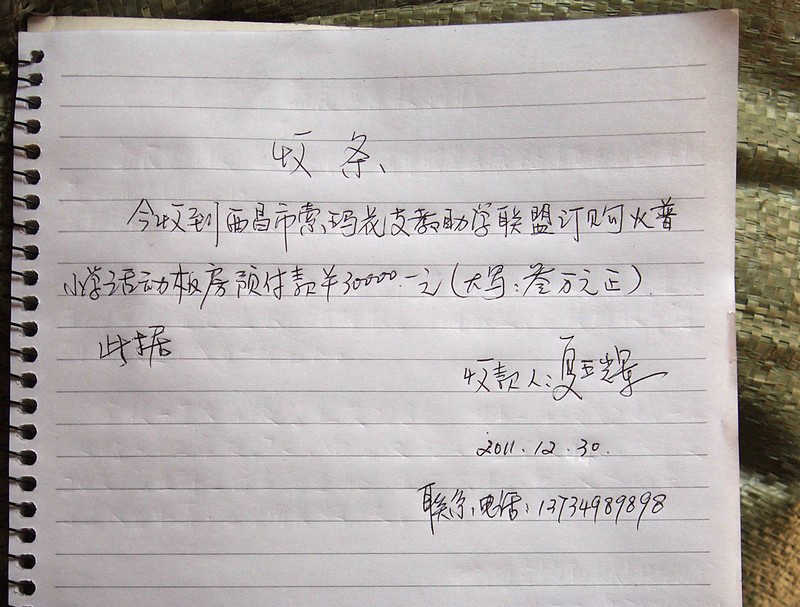 收条
今收到西昌市索玛花支教助学联盟订购火普
小学活动板房预付款¥30000.-元(大写:叁万元正).
此据
收款人:夏
2011.12.30.
联系电话:13734989898